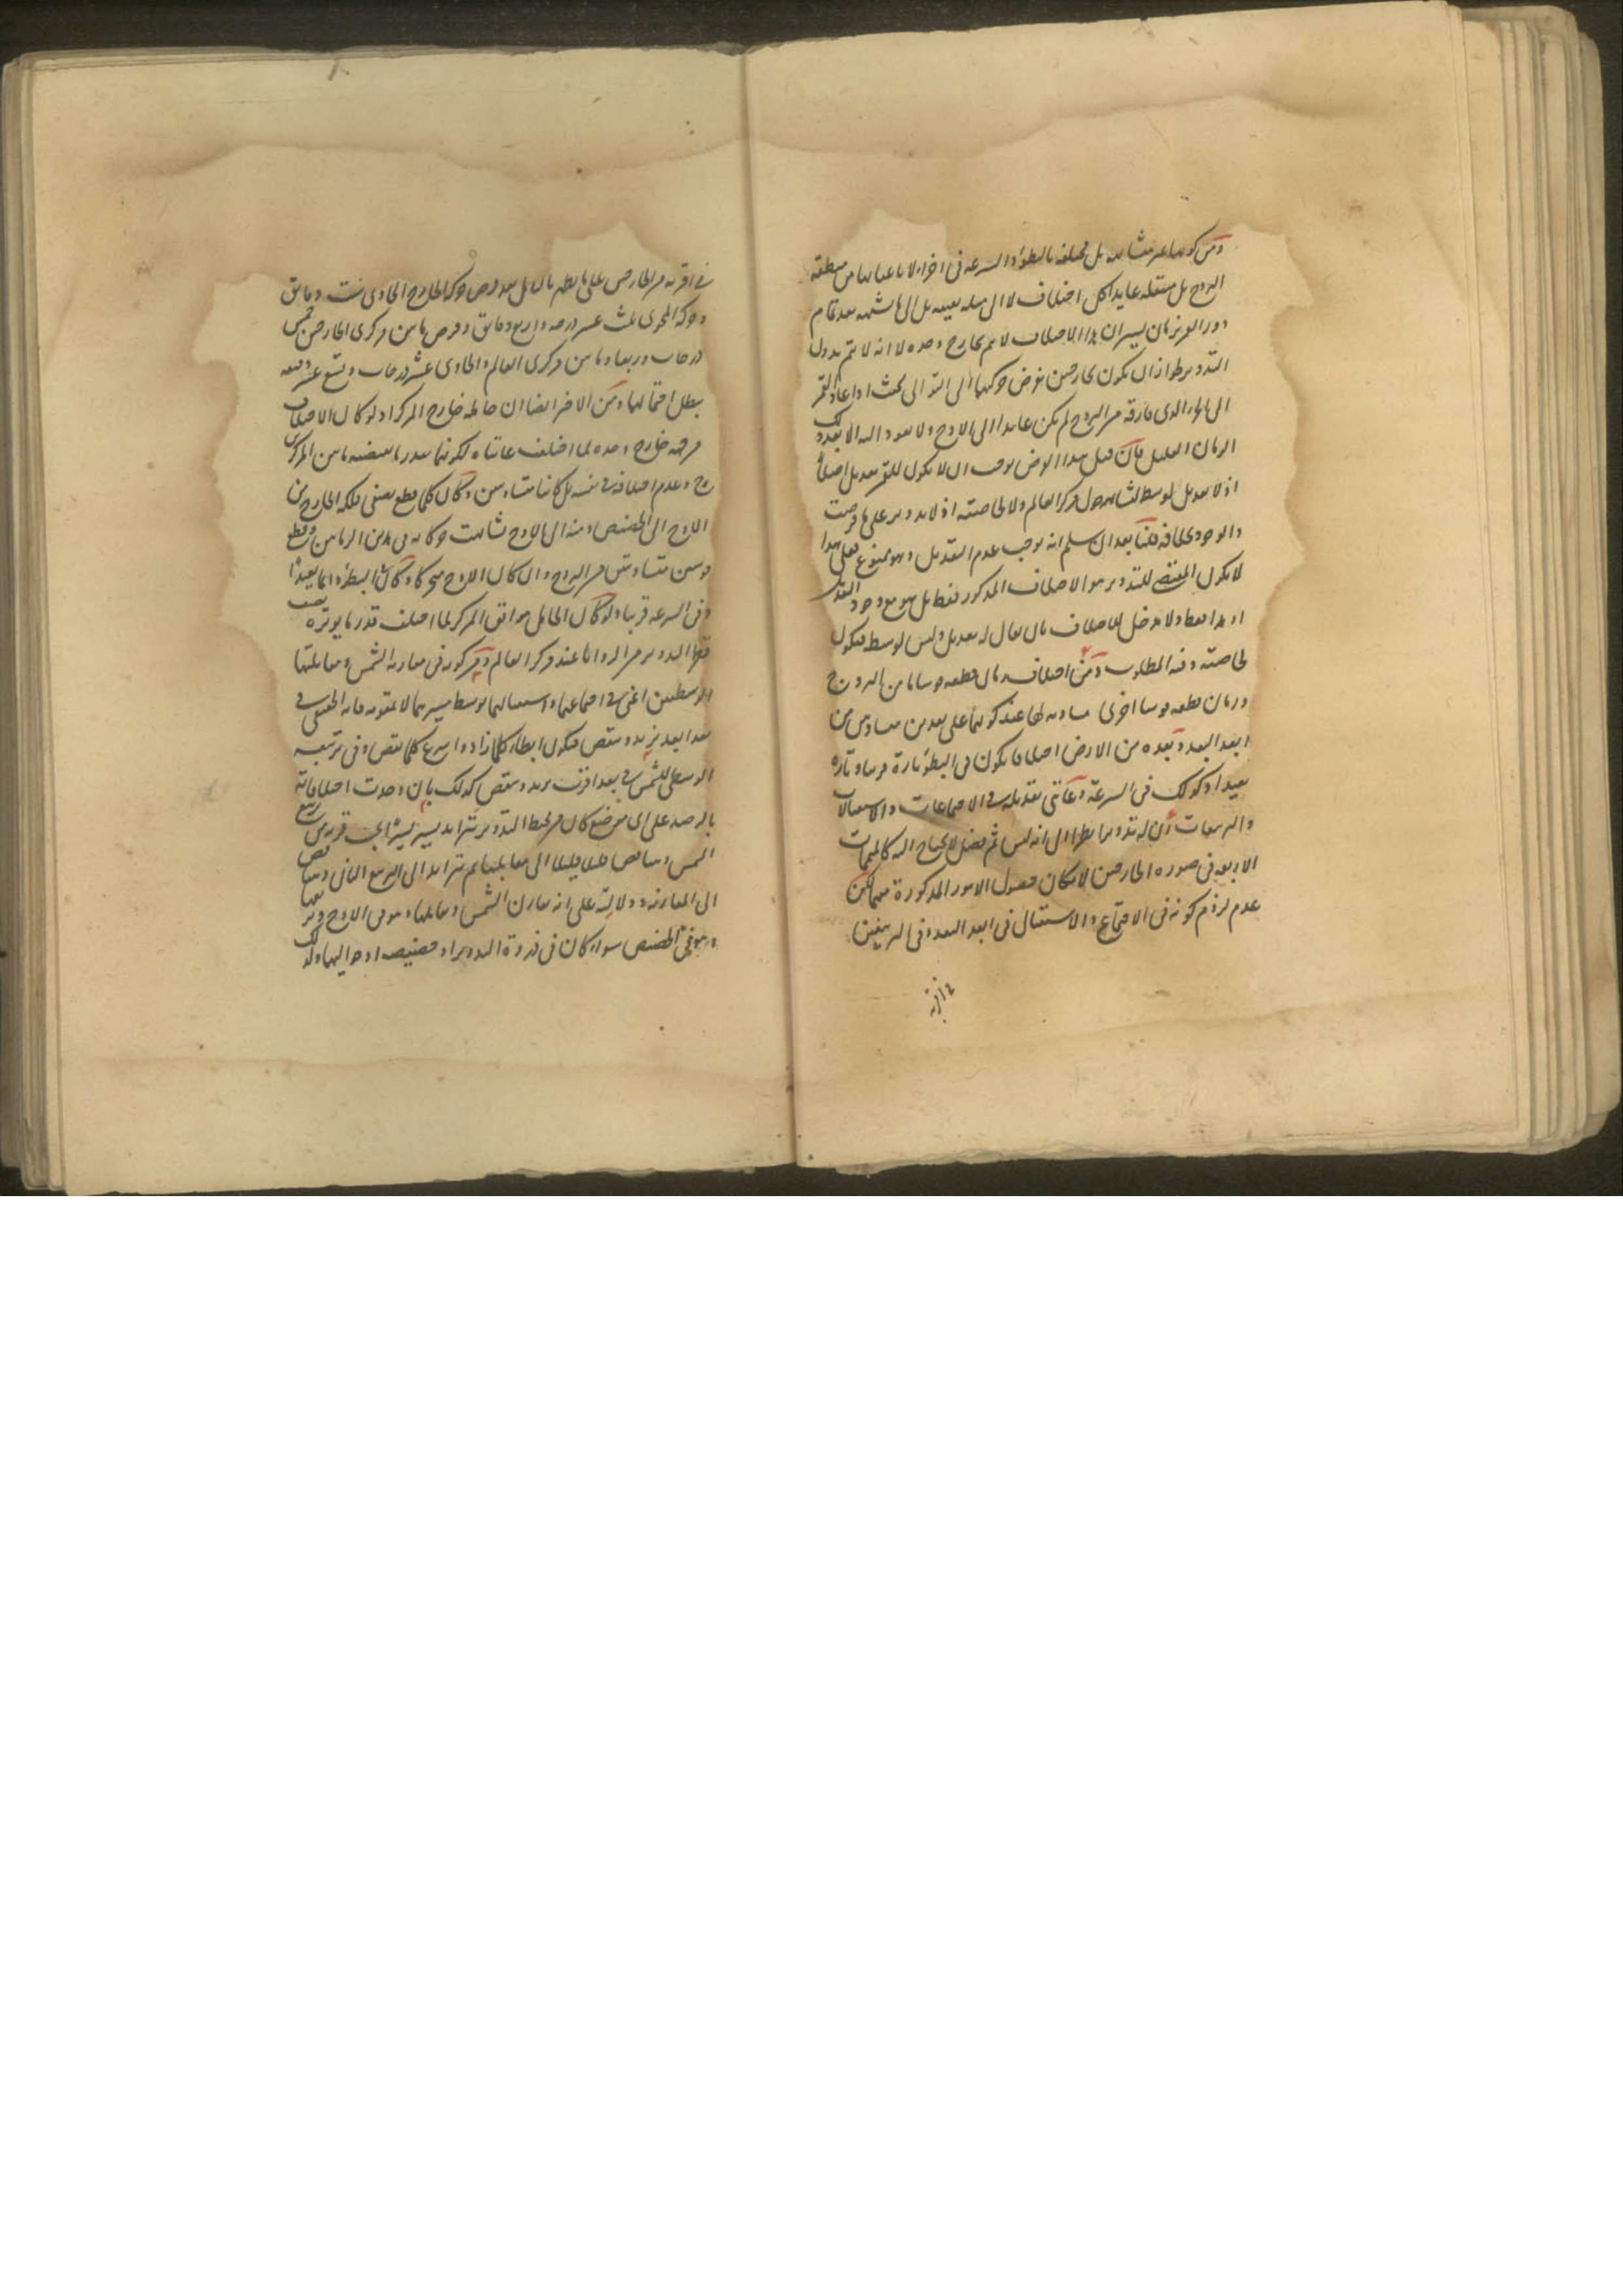 ومن كونها غير متشابهة بل مختلفة بالبطؤ والسرعة فى اجزاء لا باعيانها من منطقة
البروج بل منتقلة عايدا كل اختلاف لا الى مثله بعينه بل الى ما شبهه بعد تمام
دور القمر بزمان يسير ان هذا الاختلاف لا يتم بخارج وحده لا انه لا يتم بدون
التدوير لجواز ان يكون بخارجين نفرض حركتهما الى التوالى بحيث اذا عاد القمر
الى الجزء الذى فارقه من البروج لم يكن عايدا الى الاوج ولا يعود اليه الا بعد ذلك
الزمان القليل فان قيل هذا الفرض يوجب ان لا يكون للقمر تعديل اصلا
اذ لا تعديل لوسط لتشابهه حول مركز العالم ولا لخاصته اذ لا تدوير على ما فرضت
والوجود بخلافه قلنا بعد ان سلم انه يوجب عدم التعديل وهو ممنوع فعلى هذا
لا يكون المقتضى للتدوير هو الاختلاف المذكور فقط بل هو مع وجود التعديل
او هذا فقط ولا مدخل للاختلاف بان يقال له تعديل وليس لوسط فيكون
لخاصته وفيه المطلوب ومن اختلاف زمان قطعه قوسا ما من البروج
وزمان قطعه قوسا اخرى مساوية لها عند كونهما على بعدين متساويين من
ابعد البعد وبعده من الارض اختلافا يكون فى البطؤ تارة قريبا وتارة
بعيدا وكذلك فى السرعة وغايتى تعديله فى الاجتماعات والاستقبالات
والتربيعات ان له تدويرا نظرا الى انه ليس ثم فضل لا يحتاج اليه كالمتممات
الاربعة فى صورة الخارجين لامكان حصول الامور المذكورة بهما لكن
عدم لزوم كونه فى الاجتماع والاستقبال فى ابعد البعد وفى التربيعين
فى اقربه من الخارجين على ما يظهر بالتامل بعد فرض حركة الخارج الحاوى ست دقايق
وحركة المحوى ثلث عشر درجة واربع دقايق وفرض ما بين مركزى الخارجين خمس
درجات وربعا وما بين مركزى العالم والحاوى عشر درجات وتسع عشر دقيقة
يبطل احتمالهما ومن الاخر ايضا ان حامله خارج المركز اذ لو كان الاختلاف
من جهة خارج وحده لما اختلفت غايتاه لكونهما بقدر ما يقتضيه ما بين المركزين
وعدم اختلافه فى نفسه بل كانتا متساويتين وكان كلما قطع نصفى فلكه الخارج من
الاوج الى الحضيض ومنه الى الاوج تشابهت حركاته فى هذين الزمانين وقطع
قوسين متساويتين من البروج وان كان الاوج متحركا وكان البطؤ دائما بعيدا
وفى السرعة قريبا ولو كان الحامل موافق المركز لما اختلف قدر ما يوتره نصف
قطر التدوير من الزوايا عند مركز العالم ومن كونه فى مقارنة الشمس ومقابلتها
الوسطيين اعنى فى اجتماعهما واستقبالهما بوسط سيرهما لا بتقويمه فانه الحقيقى فى
بعد ابعد يزيد وينقص فيكون ابطأ كلما زاد واسرع كلما نقص وفى تربيعه
الوسطى للشمس فى بعد اقرب يزيد وينقص كذلك بان وجدت اختلافاته
بالرصد على اى موضع كان من محيط التدوير تتزايد يسيرا يسيرا الى قرب تربيع
الشمس وتتناقص قليلا قليلا الى مقابلتها ثم تتزايد الى التربيع الثانى وتتناقص
الى المقارنة ودلالته على انه يقارن الشمس ويقابلها وهو فى الاوج ويربعها
وهو فى الحضيض سواء كان فى ذروة التدوير او حضيضه او حواليهما ولذلك